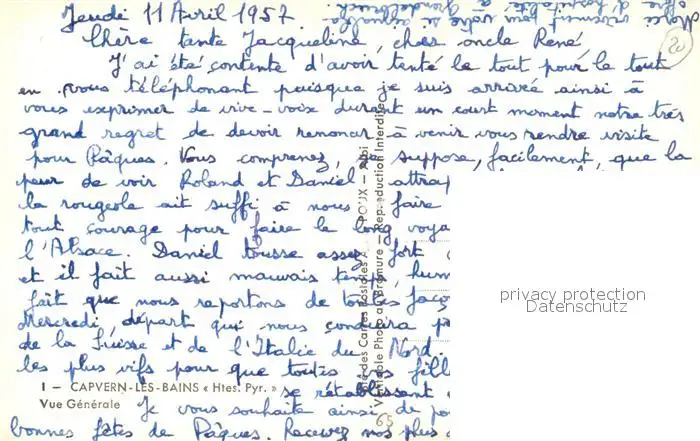 Jeudi 11 Avril 1957
Chère tante Jacqueline, cher oncle René,
J'ai été contente d'avoir tenté le tout pour le tout
en vous téléphonant puisque je suis arrivée ainsi à
vous exprimer de vive-voix durant un court moment notre très
grand regret de devoir renoncer à venir vous rendre visite
pour Pâques. Vous comprenez, je suppose, facilement, que la
peur de voir Roland et Daniel attrap
la rougeole ait suffi à nous faire
tout courage pour faire le long voya
l'Alsace. Daniel tousse assez fort
et il fait aussi mauvais temps, hum
fait que nous reportons de toutes faço
Mercredi, départ qui nous conduira
de la Suisse et de l'Italie du Nord.
les plus vifs pour que toutes vos fill
se rétablissent
Je vous souhaite ainsi de
bonnes fêtes de Pâques. Recevez nos plus
1 — CAPVERN-LES-BAINS « Htes. Pyr. »
Vue Générale
Véritable Photo au Bromure — Reproduction Interdite
65
20
privacy protection
Datenschutz